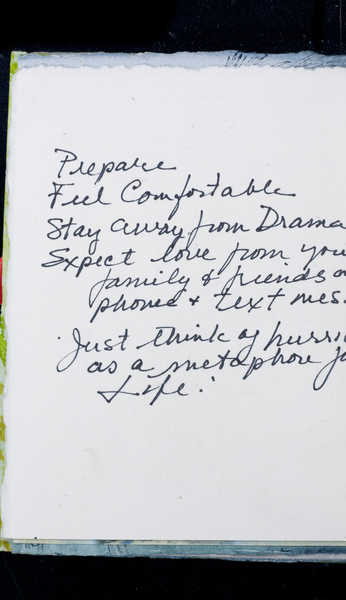 Prepare
Feel Comfortable
Stay away from Drama
Expect love from you
family & friends o
phones + text mes
Just think of hurri
as a metaphore fo
Life!